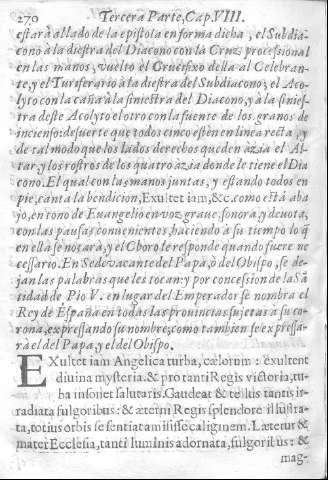 270 Tercera Parte, Cap. VIII.
estarà al lado de la epistola en forma dicha, el Subdia-
cono à la diestra del Diacono con la Cruz processional
en las manos, vuelto el Crucifixo della al Celebran-
te, y el Turiferario à la diestra del Subdiacono; el Aco-
lyto con la caña à la siniestra del Diacono, y à la sinies-
tra deste Acolyto el otro con la fuente de los granos de
incienso: de suerte que todos cinco estèn en linea recta, y
de tal modo que los lados derechos queden àzia el Al-
tar; y los rostros de los quatro àzia donde le tiene el Dia
cono. El qual con las manos juntas, y estando todos en
pie, canta la bendicion, Exultet iam, &c. como està aba
jo, en tono de Euangelio en voz graue, sonorà, y deuota,
con las pausas conuenientes, haciendo à su tiempo lo q̃
en ella se notarà, y el Choro le responde quando fuere ne
cessario. En Sedevacante del Papa, ò del Obispo, se de-
jan las palabras que les tocan: y por concession de la Sã
tidad de Pio V. en lugar del Emperador se nombra el
Rey de España en todas las prouincias sujetas à su co-
rona, expressando su nombre; como tambien se expressa-
rà el del Papa, y el del Obispo.
EXultet iam Angelica turba, cælorum: exultent
diuina mysteria. & pro tanti Regis victoria, tu-
ba insonet salutaris. Gaudeat & tellus tantis ir-
radiata fulgoribus: & æterni Regis splendore illustra-
ta, totius orbis se sentiat amilisse caliginem. Lætetur &
mater Ecclesia, tanti luminis adornata, fulgoribus: &
mag-